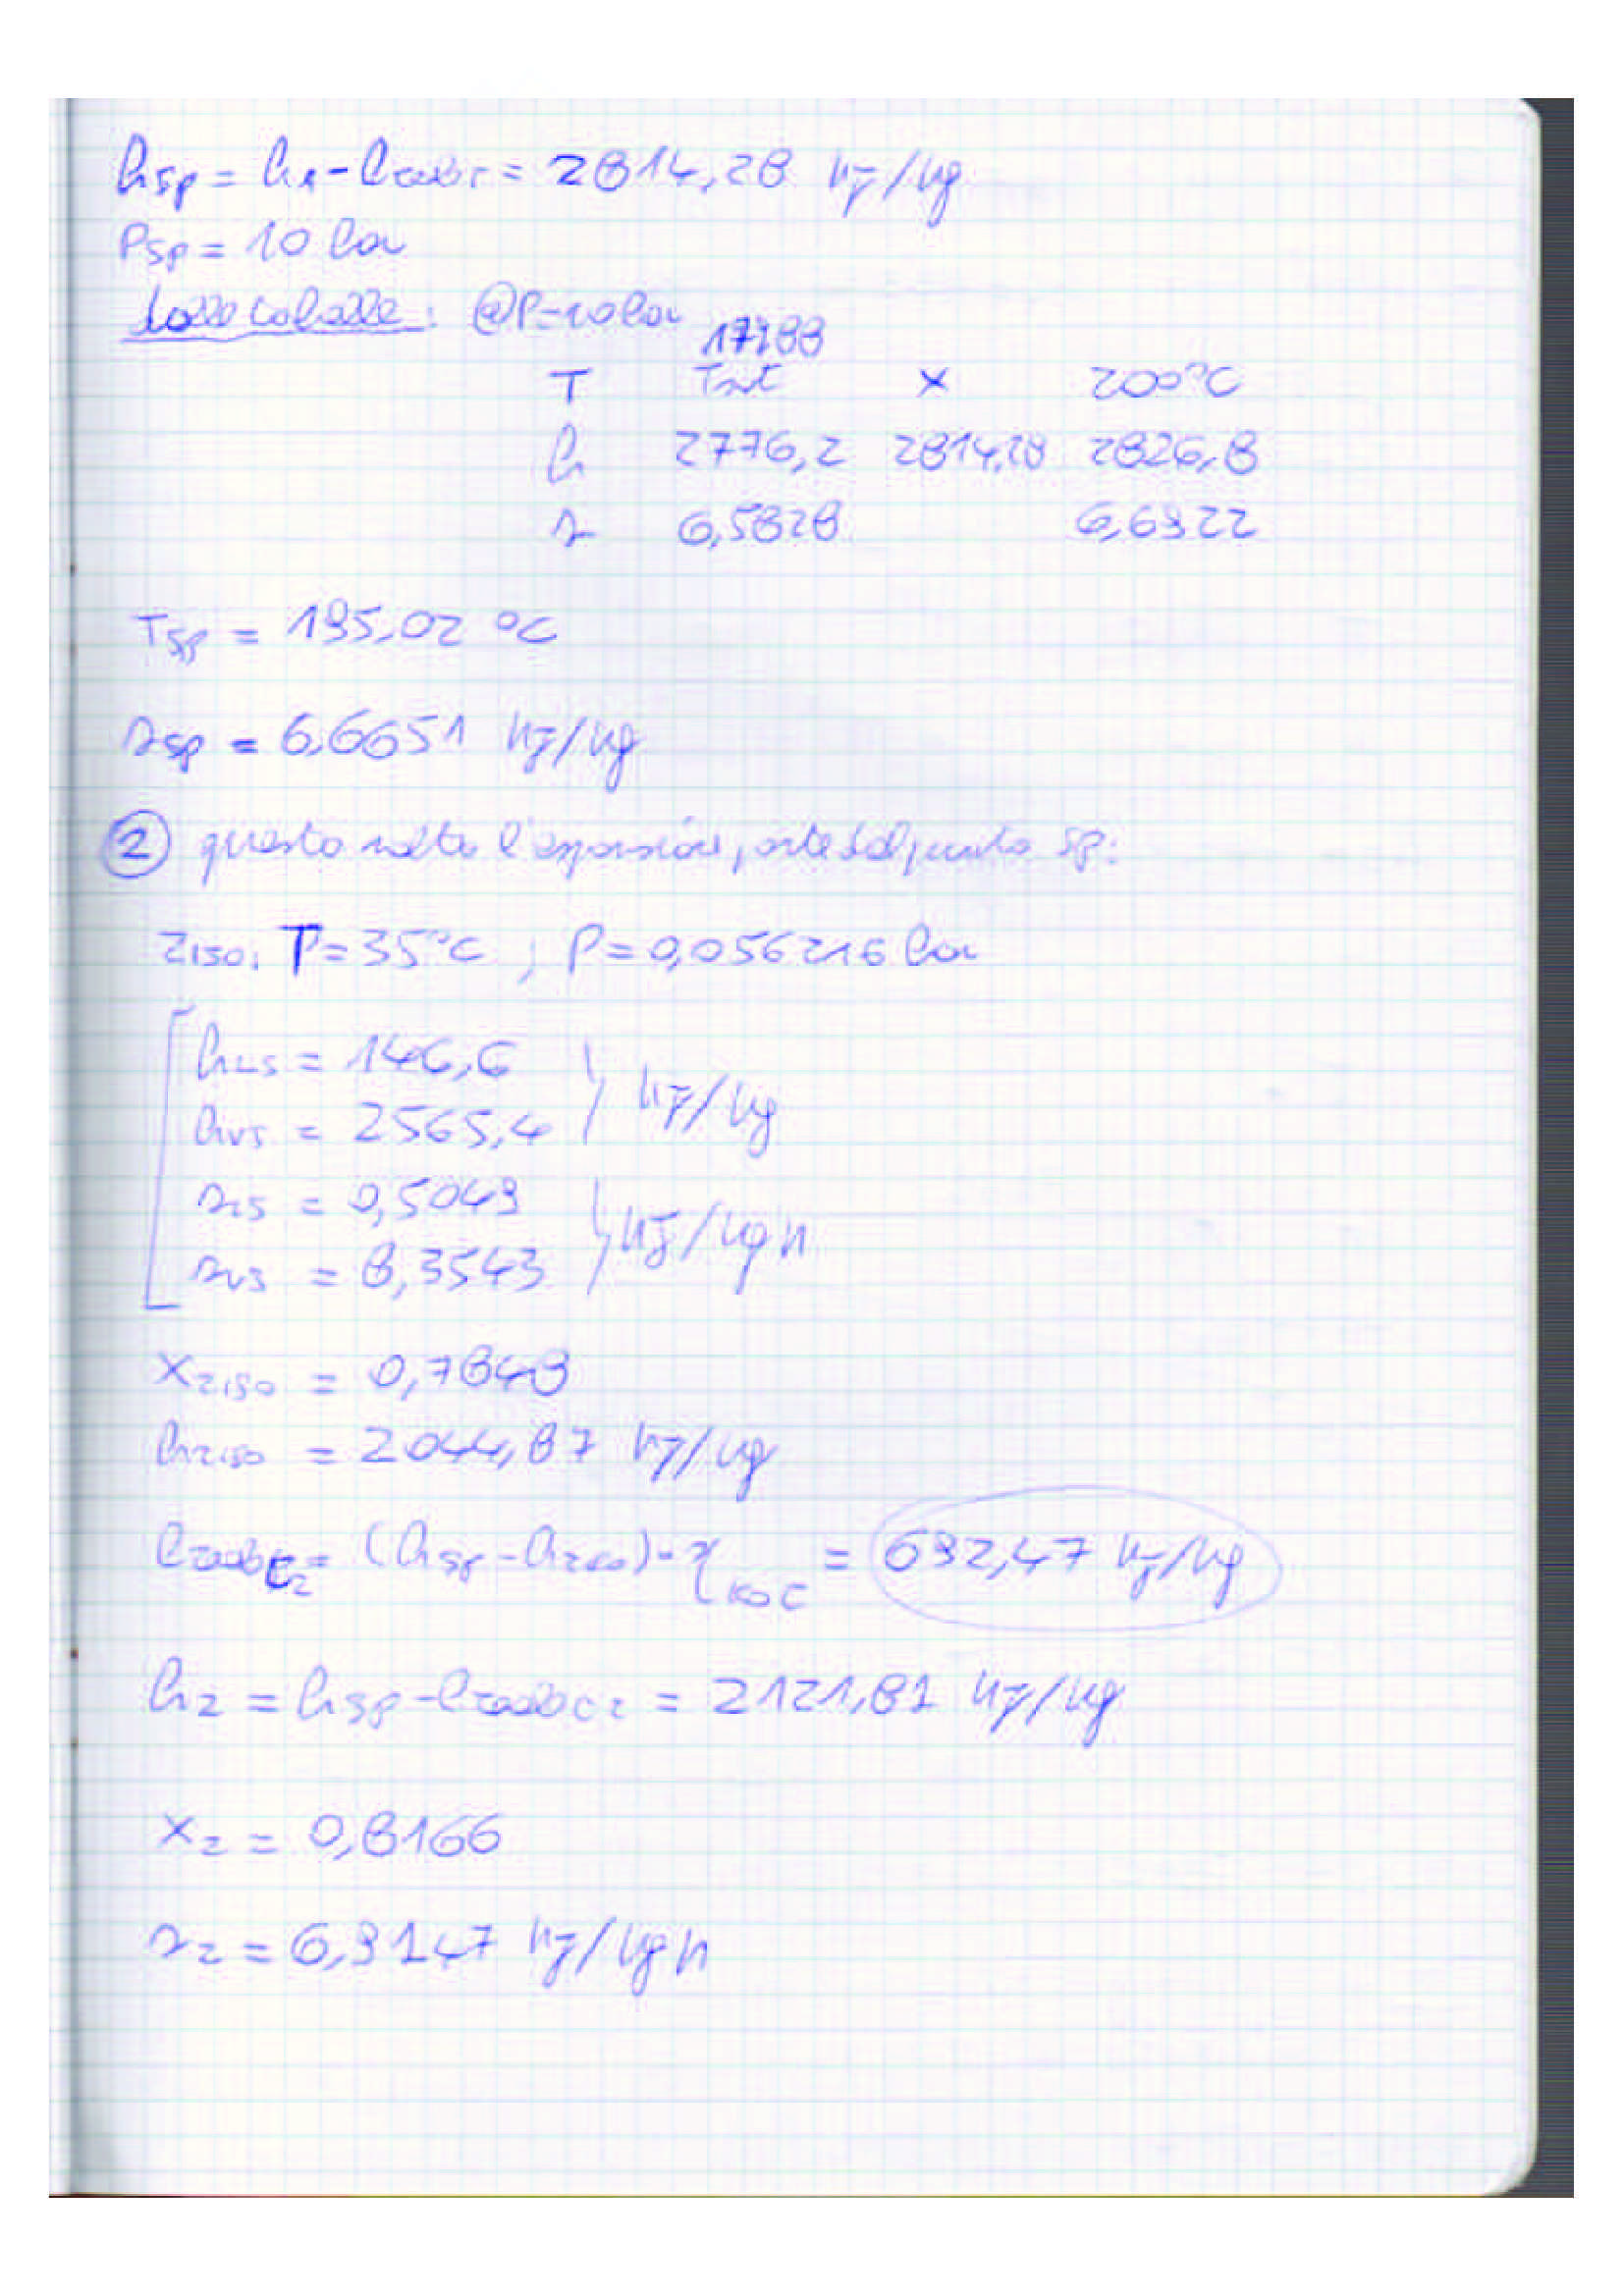 hsp = h1 - lreale = 2814,28 kJ/kg
Psp = 10 bar
dalle tabelle: @P=10bar
179,88
T Tsat x 200°C
h 2776,2 2814,28 2826,8
s 6,5828 6,6922
Tsp = 195,02 °C
ssp = 6,6651 kJ/kg
② questa volta l'espansione parte dal punto SP:
2iso: T=35°C ; P=0,056216 bar
hLS = 146,6
hVS = 2565,4 } kJ/kg
sLS = 0,5049
sVS = 8,3543 } kJ/kgK
x2iso = 0,7848
h2iso = 2044,87 kJ/kg
= (hsp - h2iso)·η = 692,47 kJ/kg
h2 = hsp - = 2121,81 kJ/kg
x2 = 0,8166
s2 = 6,9147 kJ/kgK